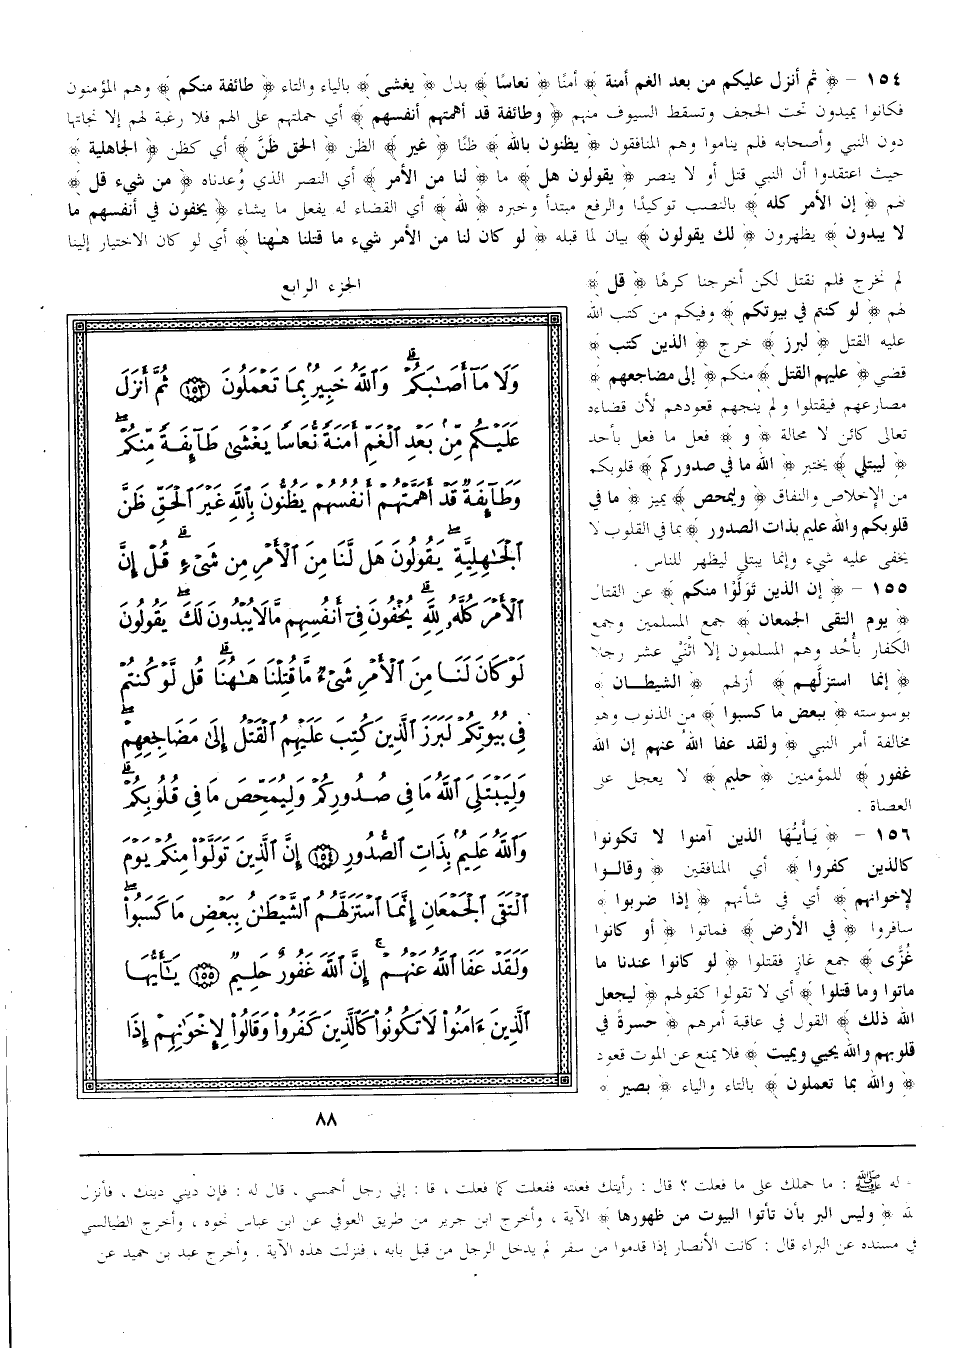 ١٥٤ – ﴿ ثم أنزل عليكم من بعد الغم أمنة ﴾ أمنًا ﴿ نعاسًا ﴾ بدل ﴿ يغشى ﴾ بالياء والتاء ﴿ طائفة منكم ﴾ وهم المؤمنون
فكانوا يميدون تحت الحجف وتسقط السيوف منهم ﴿ وطائفة قد أهمتهم أنفسهم ﴾ أي حملتهم على الهم فلا رغبة لهم إلا نجاتها
دون النبي وأصحابه فلم يناموا وهم المنافقون ﴿ يظنون بالله ﴾ ظنًا ﴿ غير ﴾ الظن ﴿ الحق ظنَّ ﴾ أي كظن ﴿ الجاهلية ﴾
حيث اعتقدوا أن النبي قتل أو لا ينصر ﴿ يقولون هل ﴾ ما ﴿ لنا من الأمر ﴾ أي النصر الذي وُعدناه ﴿ من شيء قل ﴾
لهم ﴿ إن الأمر كله ﴾ بالنصب توكيدًا والرفع مبتدأ وخبره ﴿ لله ﴾ أي القضاء له يفعل ما يشاء ﴿ يخفون في أنفسهم ما
لا يبدون ﴾ يظهرون ﴿ لك يقولون ﴾ بيان لما قبله ﴿ لو كان لنا من الأمر شيء ما قتلنا هٰهنا ﴾ أي لو كان الاختيار إلينا
لم نخرج فلم نقتل لكن أخرجنا كرهًا ﴿ قل ﴾
لهم ﴿ لو كنتم في بيوتكم ﴾ وفيكم من كتب الله
عليه القتل ﴿ لبرز ﴾ خرج ﴿ الذين كتب ﴾
قضي ﴿ عليهم القتل ﴾ منكم ﴿ إلى مضاجعهم ﴾
مصارعهم فيقتلوا ولم ينجهم قعودهم لأن قضاءه
تعالى كائن لا محالة ﴿ و ﴾ فعل ما فعل بأحد
﴿ ليبتلي ﴾ يختبر ﴿ الله ما في صدوركم ﴾ قلوبكم
من الإخلاص والنفاق ﴿ وليمحص ﴾ يميز ﴿ ما في
قلوبكم والله عليم بذات الصدور ﴾ بما في القلوب لا
يخفى عليه شيء وإنما يبتلي ليظهر للناس .
١٥٥ – ﴿ إن الذين تَوَلَّوْا منكم ﴾ عن القتال
﴿ يوم التقى الجمعان ﴾ جمع المسلمين وجمع
الكفار بأُحُد وهم المسلمون إلا اثْنَيْ عشر رجلا
﴿ إنما استزلَّهم ﴾ أزلهم ﴿ الشيطان ﴾
بوسوسته ﴿ ببعض ما كسبوا ﴾ من الذنوب وهو
مخالفة أمر النبي ﴿ ولقد عفا اللهُ عنهم إن الله
غفور ﴾ للمؤمنين ﴿ حليم ﴾ لا يعجل على
العصاة .
١٥٦ – ﴿ يَـأَيُّها الذين آمنوا لا تكونوا
كالذين كفروا ﴾ أي المنافقين ﴿ وقالوا
لإخوانهم ﴾ أي في شأنهم ﴿ إذا ضربوا ﴾
سافروا ﴿ في الأرض ﴾ فماتوا ﴿ أو كانوا
غُزًّى ﴾ جمع غاز فقتلوا ﴿ لو كانوا عندنا ما
ماتوا وما قتلوا ﴾ أي لا تقولوا كقولهم ﴿ ليجعل
الله ذلك ﴾ القول في عاقبة أمرهم ﴿ حسرةً في
قلوبهم والله يحيي ويميت ﴾ فلا يمنع عن الموت قعود
﴿ والله بما تعملون ﴾ بالتاء والياء ﴿ بصير ﴾
الجزء الرابع
وَلَا مَآ أَصَـٰبَكُمْ ۗ وَٱللَّهُ خَبِيرٌۢ بِمَا تَعْمَلُونَ ١٥٣ ثُمَّ أَنزَلَ
عَلَيْكُم مِّنۢ بَعْدِ ٱلْغَمِّ أَمَنَةً نُّعَاسًا يَغْشَىٰ طَآئِفَةً مِّنكُمْ ۖ
وَطَآئِفَةٌ قَدْ أَهَمَّتْهُمْ أَنفُسُهُمْ يَظُنُّونَ بِٱللَّهِ غَيْرَ ٱلْحَقِّ ظَنَّ
ٱلْجَـٰهِلِيَّةِ ۖ يَقُولُونَ هَل لَّنَا مِنَ ٱلْأَمْرِ مِن شَىْءٍ ۗ قُلْ إِنَّ
ٱلْأَمْرَ كُلَّهُۥ لِلَّهِ ۗ يُخْفُونَ فِىٓ أَنفُسِهِم مَّا لَا يُبْدُونَ لَكَ ۖ يَقُولُونَ
لَوْ كَانَ لَنَا مِنَ ٱلْأَمْرِ شَىْءٌ مَّا قُتِلْنَا هَـٰهُنَا ۗ قُل لَّوْ كُنتُمْ
فِى بُيُوتِكُمْ لَبَرَزَ ٱلَّذِينَ كُتِبَ عَلَيْهِمُ ٱلْقَتْلُ إِلَىٰ مَضَاجِعِهِمْ ۖ
وَلِيَبْتَلِىَ ٱللَّهُ مَا فِى صُدُورِكُمْ وَلِيُمَحِّصَ مَا فِى قُلُوبِكُمْ ۗ
وَٱللَّهُ عَلِيمٌۢ بِذَاتِ ٱلصُّدُورِ ١٥٤ إِنَّ ٱلَّذِينَ تَوَلَّوْا۟ مِنكُمْ يَوْمَ
ٱلْتَقَى ٱلْجَمْعَانِ إِنَّمَا ٱسْتَزَلَّهُمُ ٱلشَّيْطَـٰنُ بِبَعْضِ مَا كَسَبُوا۟ ۖ
وَلَقَدْ عَفَا ٱللَّهُ عَنْهُمْ ۚ إِنَّ ٱللَّهَ غَفُورٌ حَلِيمٌ ١٥٥ يَـٰٓأَيُّهَا
ٱلَّذِينَ ءَامَنُوا۟ لَا تَكُونُوا۟ كَٱلَّذِينَ كَفَرُوا۟ وَقَالُوا۟ لِإِخْوَٰنِهِمْ إِذَا
٨٨
له ﷺ : ما حملك على ما فعلت ؟ قال : رأيتك فعلته ففعلت كما فعلت ، قا : إني رجل أحمسي ، قال له : فإن ديني دينك ، فأنزل
لله ﴿ وليس البر بأن تأتوا البيوت من ظهورها ﴾ الآية ، وأخرج ابن جرير من طريق العوفي عن ابن عباس نحوه ، وأخرج الطيالسي
في مسنده عن البراء قال : كانت الأنصار إذا قدموا من سفر لم يدخل الرجل من قبل بابه ، فنزلت هذه الآية . وأخرج عبد بن حميد عن